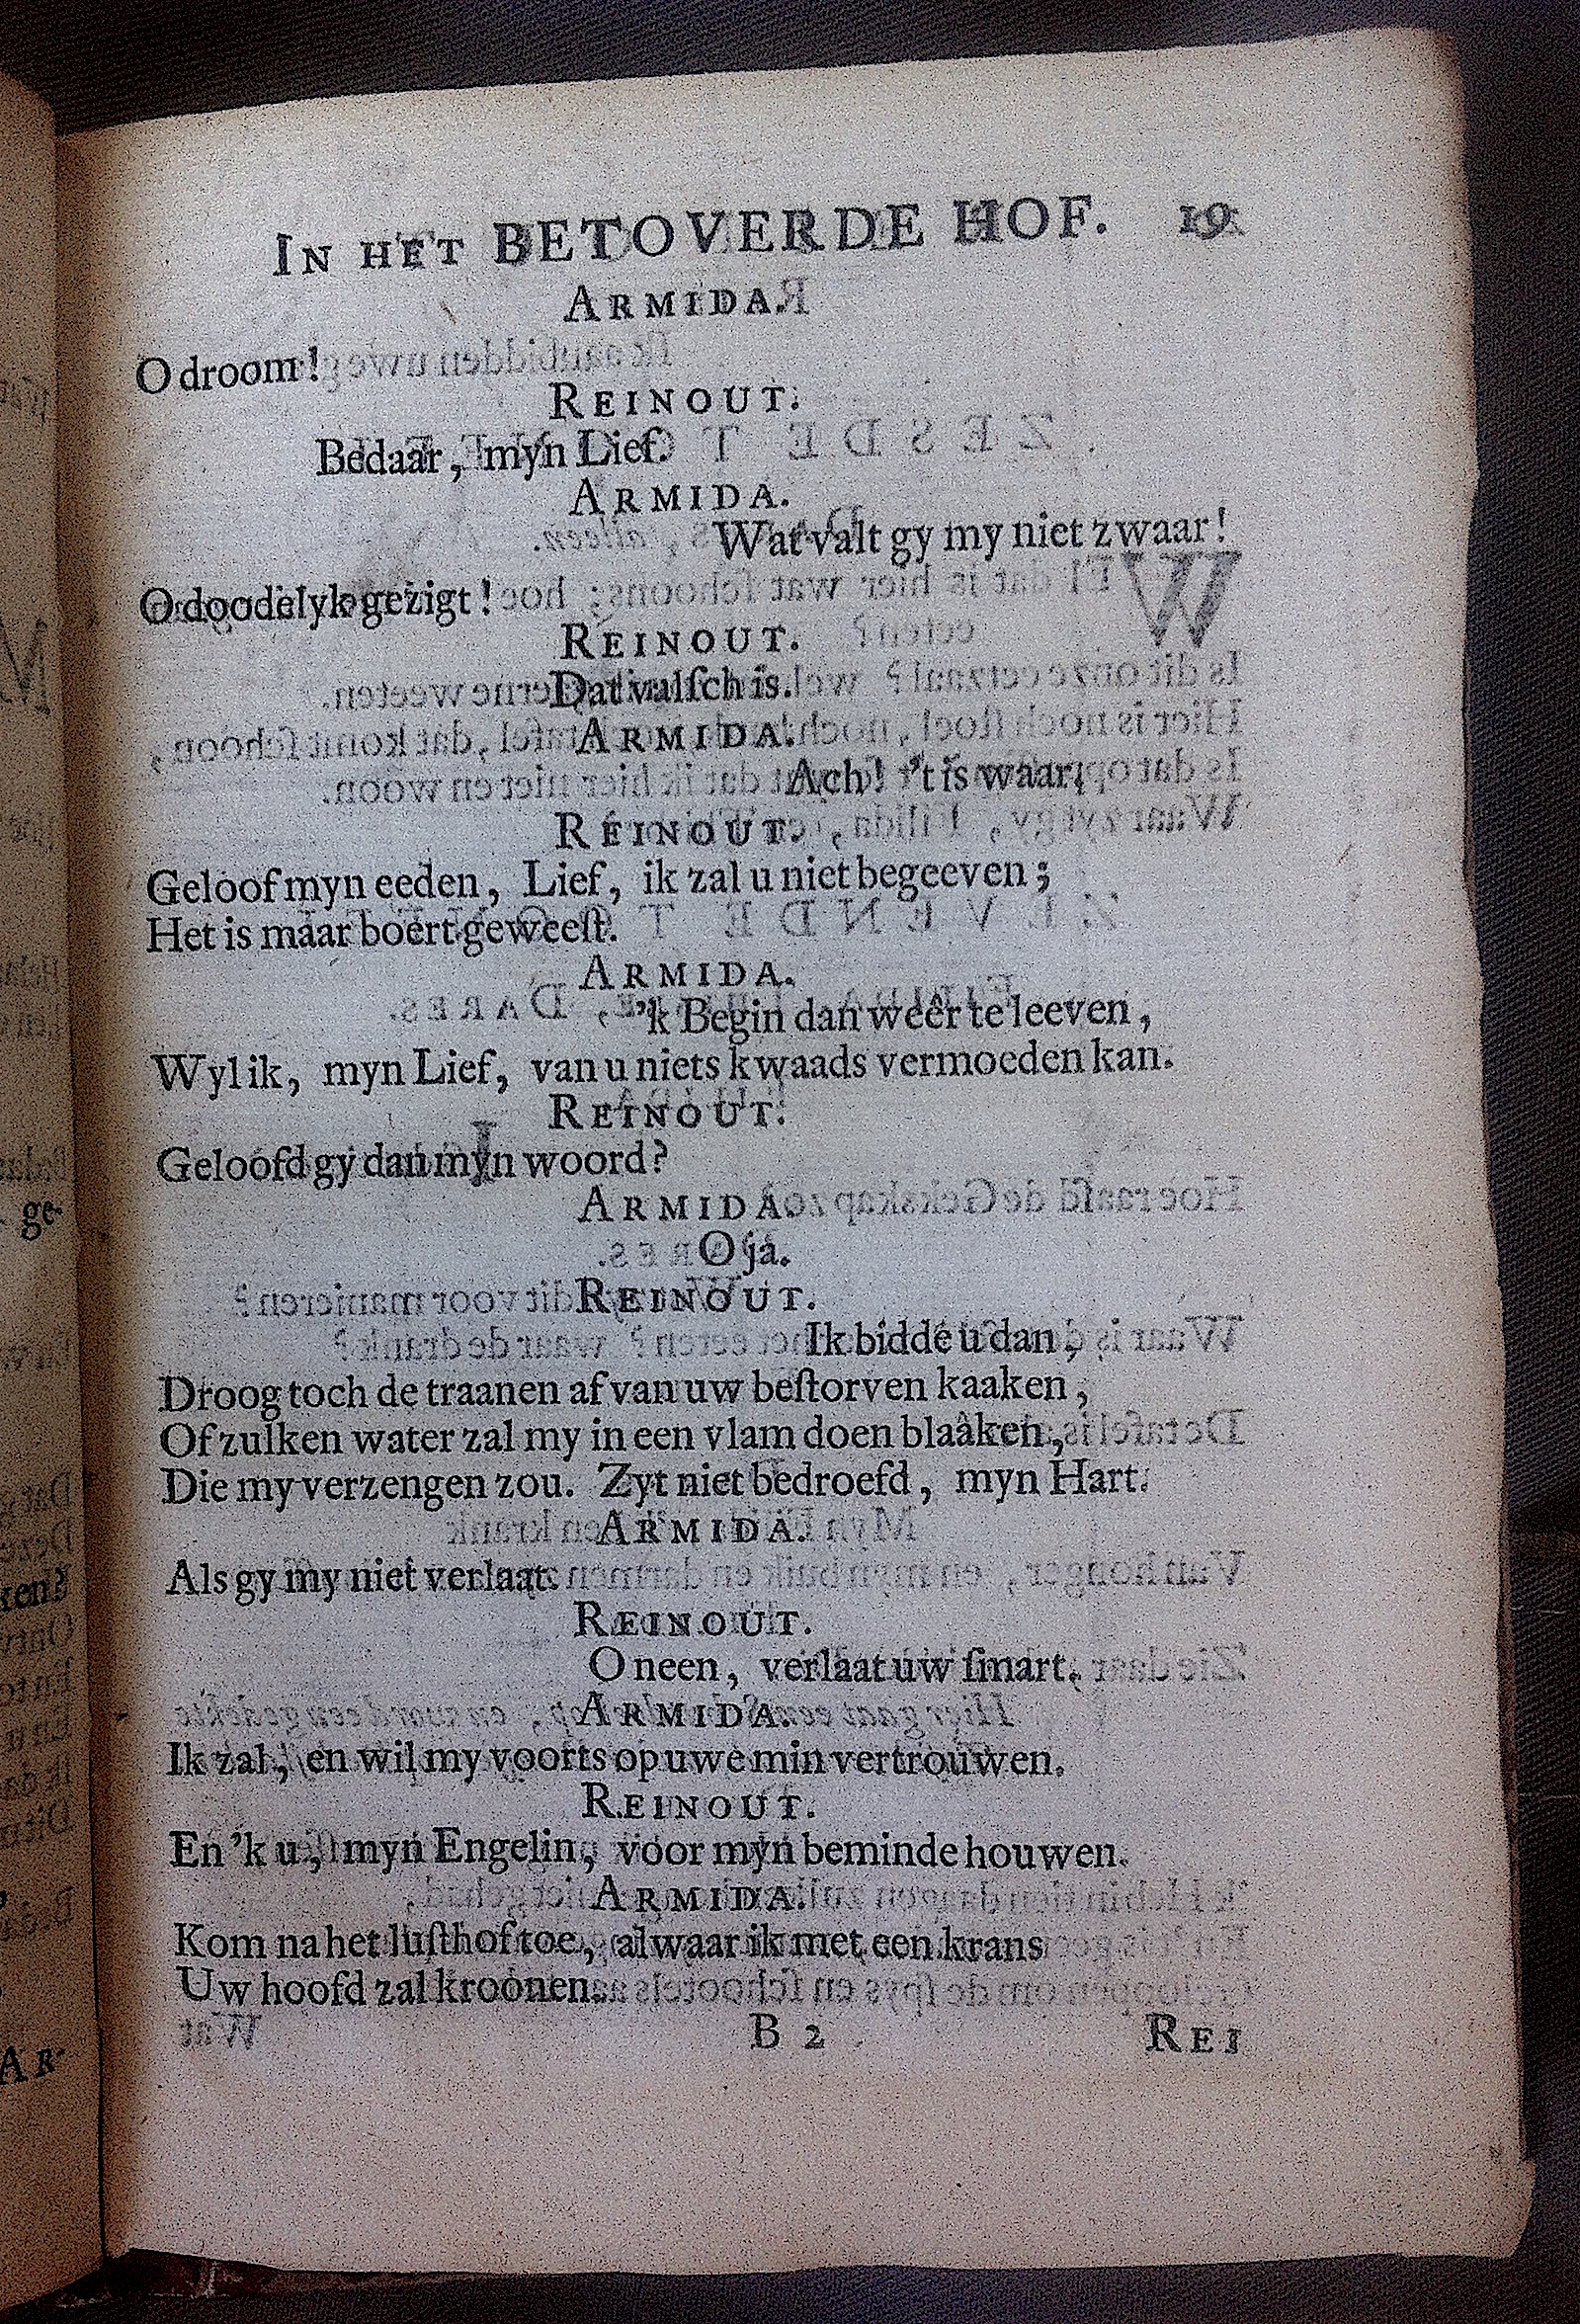 IN HET BETOVERDE HOF. 19
ARMIDA.
O droom!
REINOUT.
Bedaar, myn Lief.
ARMIDA.
Wat valt gy my niet zwaar!
O doodelyk gezigt!
REINOUT.
Dat valſch is.
ARMIDA.
Ach! 't is waar.
REINOUT.
Geloof myn eeden, Lief, ik zal u niet begeeven;
Het is maar boert geweeſt.
ARMIDA.
'k Begin dan weer te leeven,
Wyl ik, myn Lief, van u niets kwaads vermoeden kan.
REINOUT.
Geloofd gy dan myn woord?
ARMIDA.
O ja.
REINOUT.
Ik bidde u dan,
Droog toch de traanen af van uw beſtorven kaaken,
Of zulken water zal my in een vlam doen blaaken,
Die my verzengen zou. Zyt niet bedroefd, myn Hart.
ARMIDA.
Als gy my niet verlaat.
REINOUT.
O neen, verlaat uw ſmart.
ARMIDA.
Ik zal, en wil my voorts op uwe min vertrouwen.
REINOUT.
En 'k u, myn Engelin, voor myn beminde houwen.
ARMIDA.
Kom na het luſthof toe, alwaar ik met een krans
Uw hoofd zal kroonen.
B 2 REI